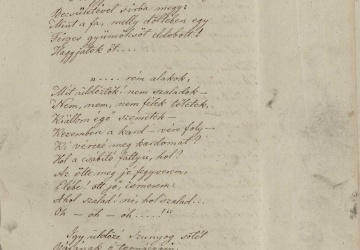 Becsületével sirba megy:
Mint a fa, melly döltében egy
Férges gyümölcsöt eldobott!
Hagyjatok őt....
„.... rém alakok,
Mit üldöztök! nem szaladok –
Nem, nem, nem félek töletek,
Kiállom égő szemetek –
Kezemben a kard – vére foly –
Ki vérezé meg kardomat?
Hol a csábitó fattyu, hol?
Az ölte meg jó fegyverem,
Elébe! ott jő, ismerem:
Ahol szalad! ni, hol szalad...
Oh – oh – oh.....!"
Igy üldözé Szunyog